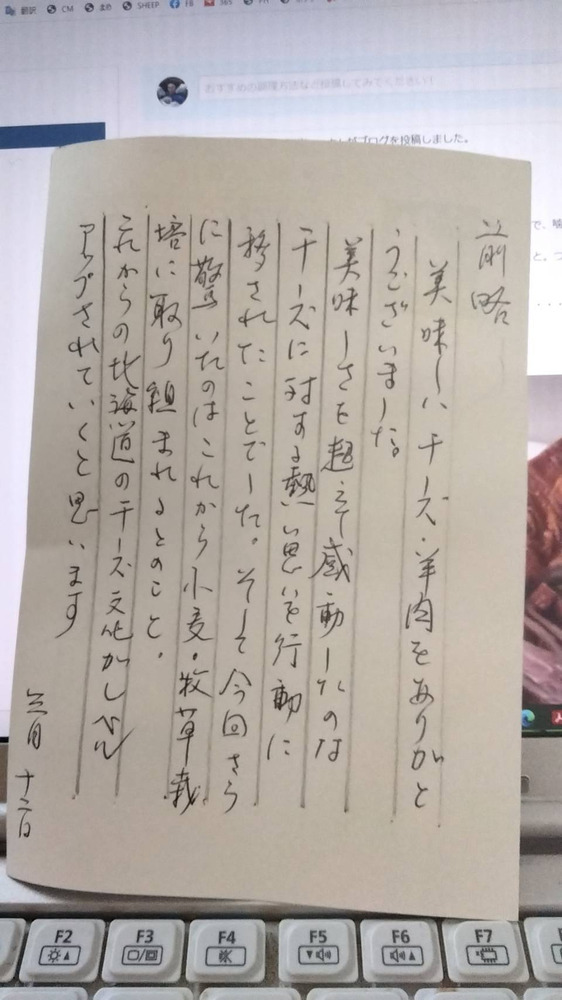 翻訳 CM まめ SHEEP FB 365
おすすめの調理方法など投稿してみてください！
ブログを投稿しました。
前略
美味しいチーズ・羊肉をありがと
うございました。
美味しさを超えて感動したのは
チーズに対する熱い思いを行動に
移されたことでした。そして今回さら
に驚いたのはこれから小麦・牧草栽
培に取り組まれるとのこと。
これからの北海道のチーズ文化がしぜん
アップされていくと思います
三月 十二日
F2
F3
F4
F5
F6
F7